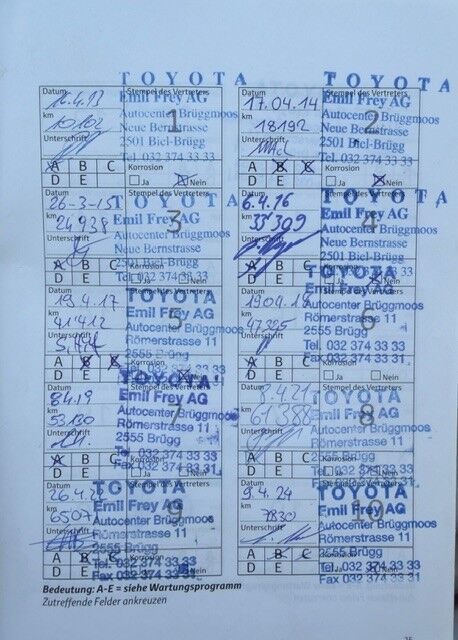 TOYOTA
Datum Stempel des Vertreters
16.4.13 Emil Frey AG
km Autocenter Brüggmoos
10.102 1 Neue Bernstrasse
Unterschrift 2501 Biel-Brügg
Tel. 032 374 33 33
A B C Korrosion
D E Ja Nein
TOYOTA
Datum Stempel des Vertreters
17.04.14 Emil Frey AG
km Autocenter Brüggmoos
18192 2 Neue Bernstrasse
Unterschrift 2501 Biel-Brügg
Tel. 032 374 33 33
A B C Korrosion
D E Ja Nein
TOYOTA
26-3-15 Emil Frey AG
km Autocenter Brüggmoos
24938 3 Neue Bernstrasse
Unterschrift 2501 Biel-Brügg
Tel. 032 374 33 33
A B C
D E
TOYOTA
6.4.16 Emil Frey AG
km Autocenter Brüggmoos
33399 4 Neue Bernstrasse
Unterschrift 2501 Biel-Brügg
A B C
D E
Datum Stempel des Vertreters
19.4.17 TOYOTA
km Emil Frey AG
41412 5 Autocenter Brüggmoos
Unterschrift Römerstrasse 11
2555 Brügg
A B C Korrosion
D E
TOYOTA
Datum Emil Frey AG
19.04.18 Autocenter Brüggmoos
km Römerstrasse 11
47325 6 2555 Brügg
Unterschrift Tel. 032 374 33 33
Fax 032 374 33 31
A B C Korrosion
D E Ja Nein
TOYOTA
Datum Stempel des Vertreters
8.4.19 Emil Frey AG
km Autocenter Brüggmoos
53.130 7 Römerstrasse 11
Unterschrift 2555 Brügg
Tel. 032 374 33 33
A B C Korrosion
D E Fax 032 374 33 31
Datum Stempel des Vertreters
8.4.21 TOYOTA
km Emil Frey AG
61388 8 Autocenter Brüggmoos
Unterschrift Römerstrasse 11
2555 Brügg
A B C Korrosion
D E Fax 032 374 33 31
Datum Stempel des Vertreters
26.4. TOYOTA
km Emil Frey AG
6507 9 Autocenter Brüggmoos
Unterschrift Römerstrasse 11
2555 Brügg
A B C Tel. 032 374 33 33
D E Fax 032 374 33 31 Nein
Datum Stempel des Vertreters
9.4.24 TOYOTA
km Emil Frey AG
7830 Autocenter Brüggmoos
Unterschrift Römerstrasse 11
2555 Brügg
A B C Tel. 032 374 33 33
D E Fax 032 374 33 31
Bedeutung: A-E = siehe Wartungsprogramm
Zutreffende Felder ankreuzen